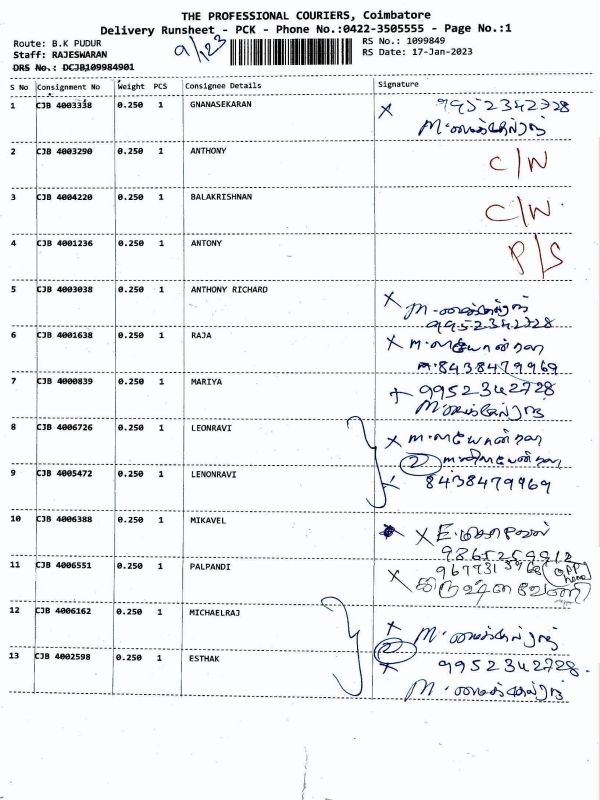 THE PROFESSIONAL COURIERS, Coimbatore
Delivery Runsheet - PCK - Phone No.:0422-3505555 - Page No.:1
Route: B.K PUDUR
RS No.: 1099849
Staff: RAJESWARAN
RS Date: 17-Jan-2023
DRS No.: DCJB109984901
9/123
S No Consignment No Weight PCS Consignee Details Signature
1 CJB 4003338 0.250 1 GNANASEKARAN X 9952342728
2 CJB 4003290 0.250 1 ANTHONY C/W
3 CJB 4004220 0.250 1 BALAKRISHNAN C/W.
4 CJB 4001236 0.250 1 ANTONY P/S
5 CJB 4003038 0.250 1 ANTHONY RICHARD X
9952342728
6 CJB 4001638 0.250 1 RAJA X
8438479969
7 CJB 4000839 0.250 1 MARIYA 9952342728
8 CJB 4006726 0.250 1 LEONRAVI X
2
9 CJB 4005472 0.250 1 LENONRAVI 8438479969
10 CJB 4006388 0.250 1 MIKAVEL X
9865259912
11 CJB 4006551 0.250 1 PALPANDI X
12 CJB 4006162 0.250 1 MICHAELRAJ X
2
13 CJB 4002598 0.250 1 ESTHAK X 9952342728.